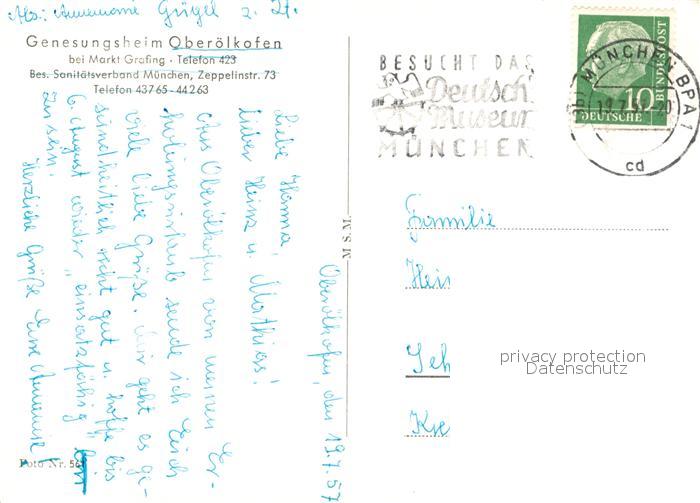 Abs: Annemarie Gügel z. Zt.
Genesungsheim Oberölkofen
bei Markt Grafing · Telefon 423
Bes. Sanitätsverband München, Zeppelinstr. 73
Telefon 43765 - 44263
Oberölkofen, den 19.7.57
Liebe Hanna,
lieber Heinz u. Mathias!
Aus Oberölkofen von meinem Er-
holungsurlaub sende ich Euch
viele liebe Grüße. Mir geht es ge-
sundheitlich recht gut u. hoffe bis
6. August wieder "einsatzfähig"
zu sein.
Herzliche Grüße Eure Annemarie!
Foto Nr. 56
M S M
BESUCHT DAS
Deutsche
Museum
MÜNCHEN
MÜNCHEN BPA 1
19.7.57
20
cd
10
DEUTSCHE
BUNDESPOST
Familie
Hein
Seh
Kre
privacy protection
Datenschutz